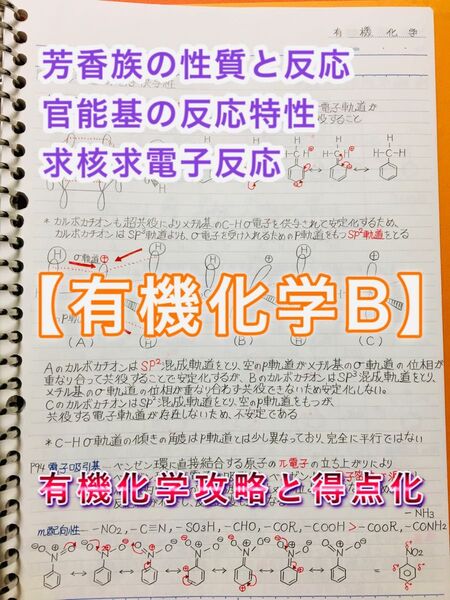 有機化学
芳香族の性質と反応
電子軌道が
官能基の反応特性
求核求電子反応
*カルボカチオンも超共役によりメチル基のC-Hσ電子を供与されて安定化するため、
カルボカチオンはSP³軌道よりも、σ電子を受け入れるためのP軌道をもつSP²軌道をとる
σ軌道
【有機化学B】
(A) (B) (C)
AのカルボカチオンはSP²混成軌道をとり、空のP軌道がメチル基のσ軌道の位相が
重なり合って共役することで安定化するが、BのカルボカチオンはSP³混成軌道をとり、
メチル基のσ軌道の位相が重なり合わず共役できないため安定化しない。
CのカルボカチオンはSP²混成軌道をとり、空のP軌道をもつが、
共役する電子軌道が存在しないため、不安定である
*C-Hσ軌道の傾きの角度はP軌道とは少し異なっており、完全に平行ではない
P94 電子吸引基 ベンゼン環に直接結合する原子のπ電子の立ち上がりにより
有機化学攻略と得点化
-NH₃
m配向性 -NO₂, -C≡N, -SO₃H, -CHO, -COR, -COOH > -COOR, -CONH₂